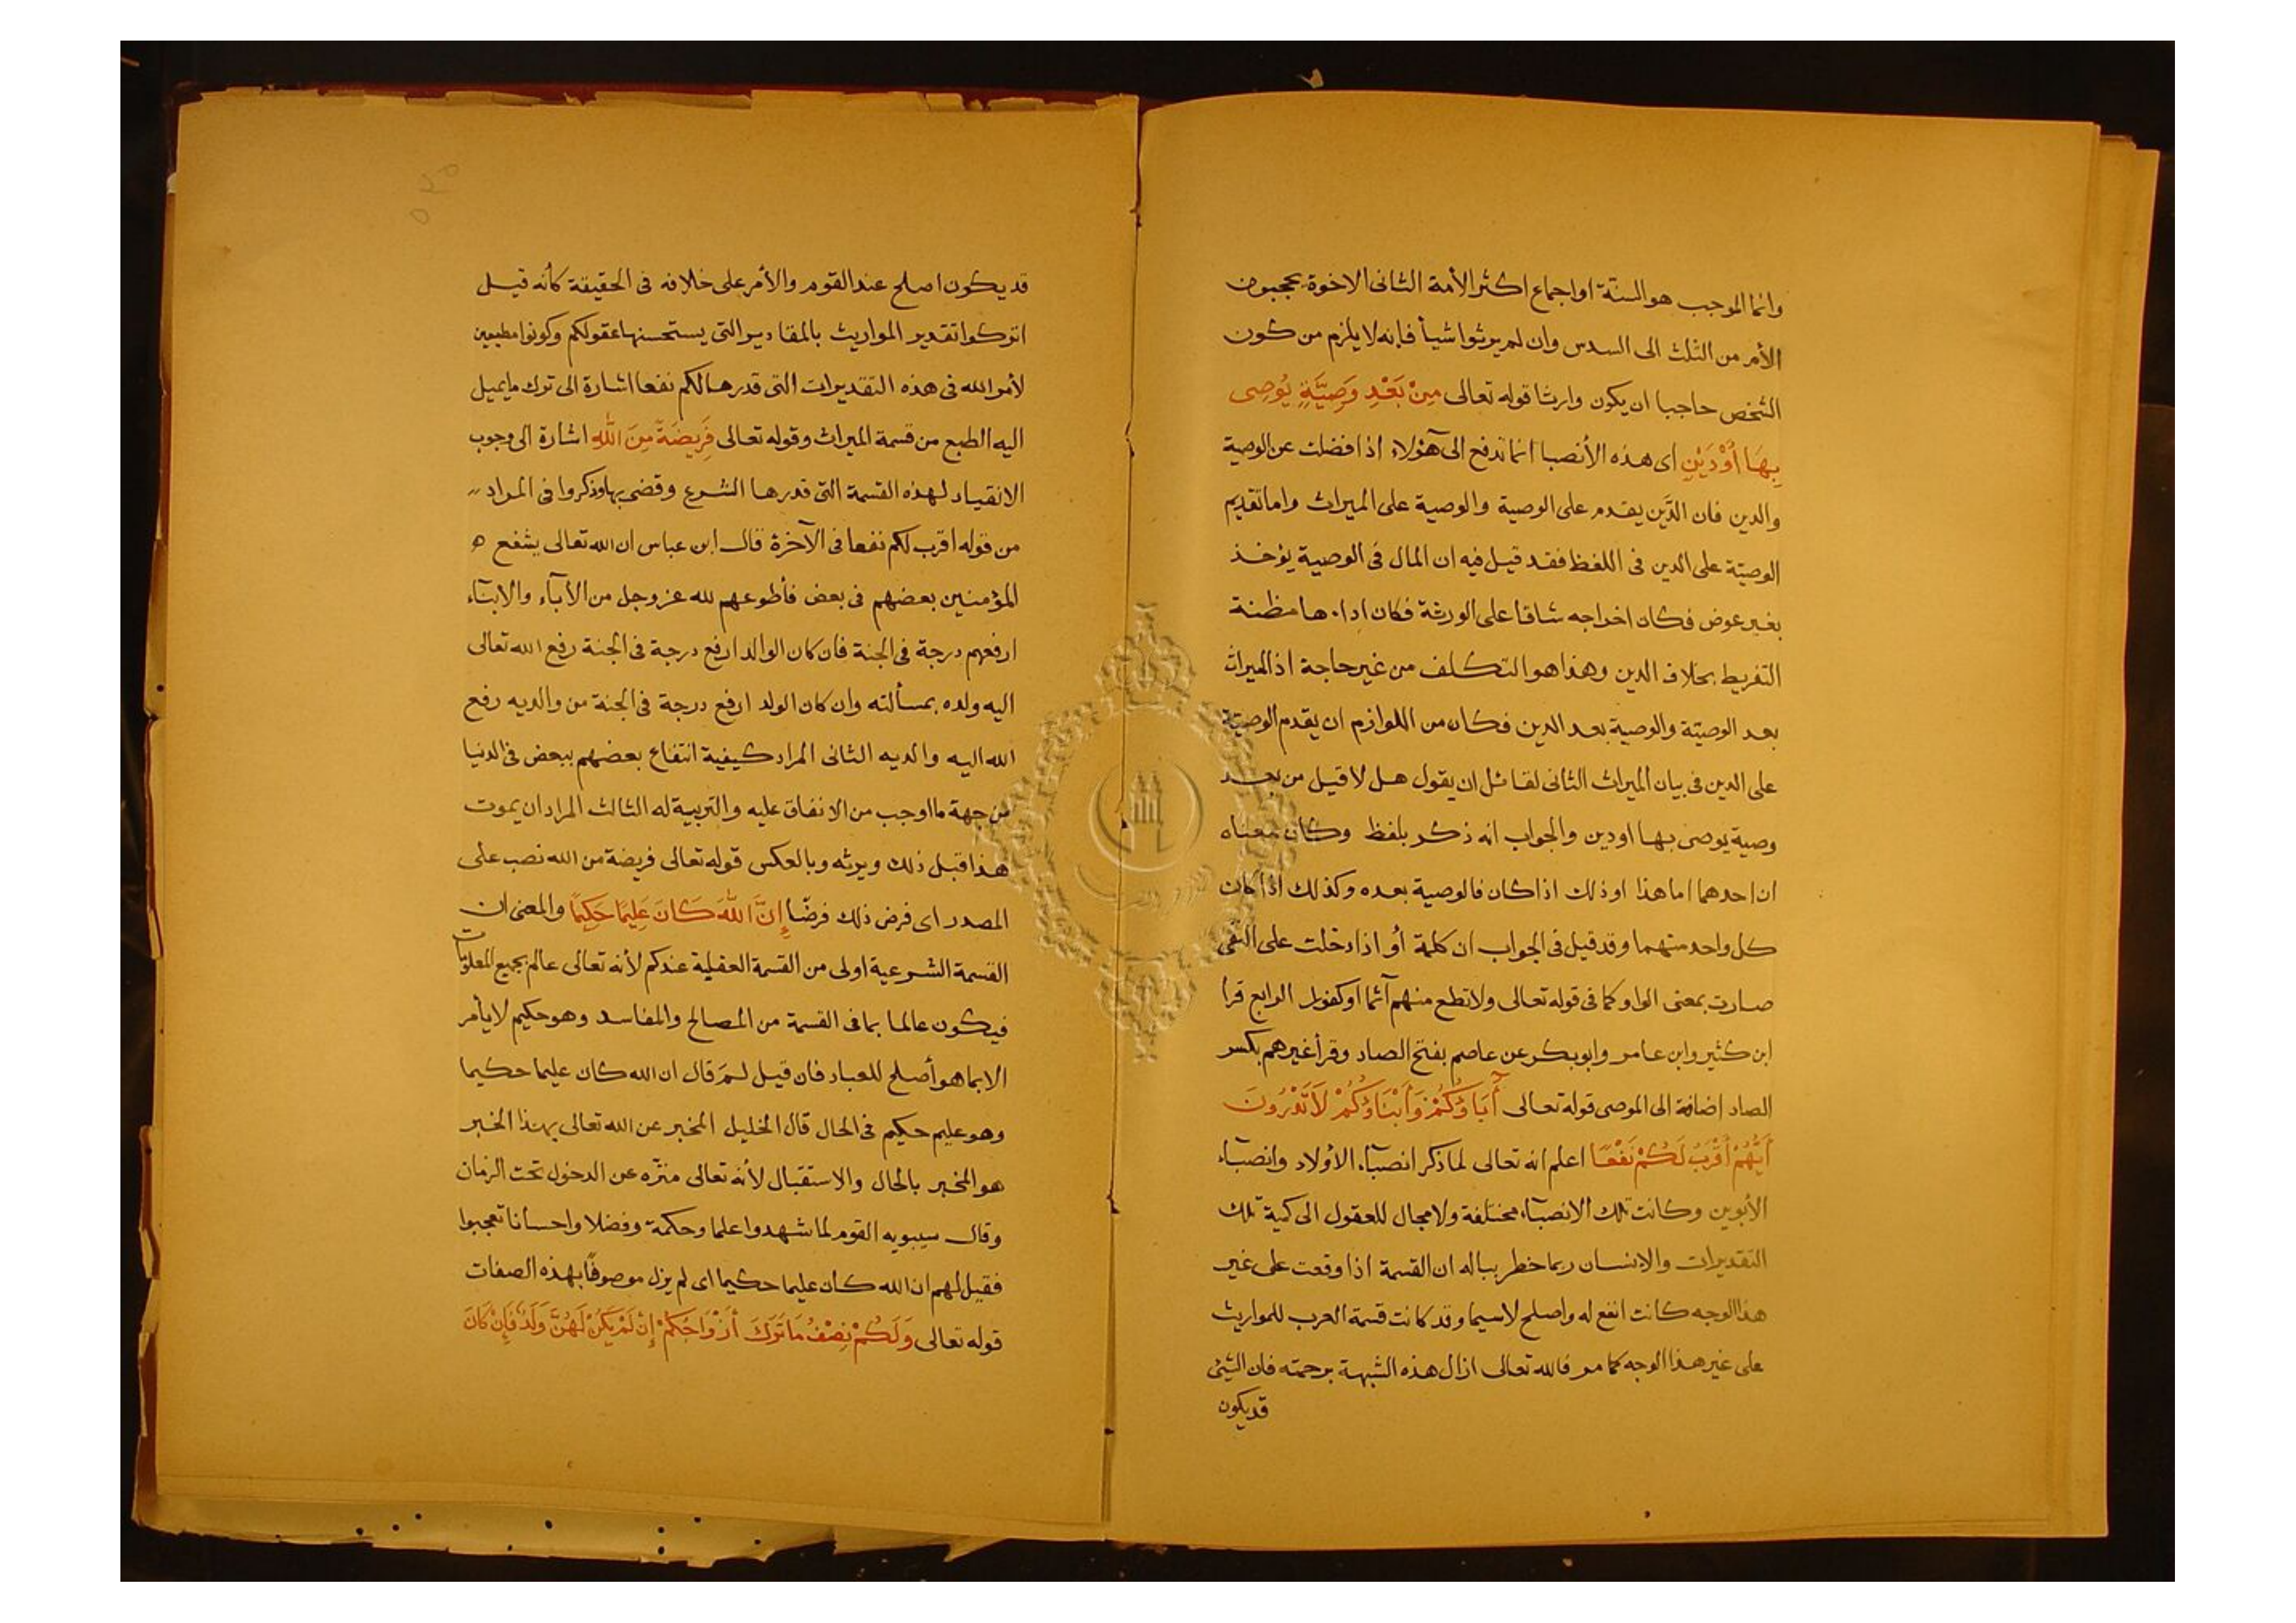 وانما الموجب هو السنّة او اجماع اكثر الأمة الثانى الاخوة يحجبون
الأمر من الثلث الى السدس وان لم يرثوا شيأ فإنه لا يلزم من كون
الشخص حاجبا ان يكون وارثا قوله تعالى مِنْ بَعْدِ وَصِيَّةٍ يُوصِى
بِهَا أَوْدَيْنٍ اى هذه الأنصبا انما تدفع الى هؤلاء اذا فضلت عن الوصية
والدين فان الدَّين يقدم على الوصية والوصية على الميراث واما تقديم
الوصيّة على الدين فى اللفظ فقد قيل فيه ان المال فى الوصية يؤخذ
بغير عوض فكان اخراجه شاقا على الورثة فكان اداءها مظنة
التفريط بخلاف الدين وهذا هو التكلف من غير حاجة اذ الميراث
بعد الوصيّة والوصية بعد الدين فكان من اللوازم ان يقدم الوصيّة
على الدين فى بيان الميراث الثانى لقائل ان يقول هل لا قيل من بعد
وصية يوصى بها او دين والجواب انه ذكر بلفظ وكان معناه
ان احدهما اما هذا او ذلك اذا كان فالوصية بعده وكذلك اذا كان
كل واحد منهما وقد قيل فى الجواب ان كلمة أو اذا دخلت على النفى
صارت بمعنى الواو كما فى قوله تعالى ولا تطع منهم آثما او كفورا الرابع قرأ
ابن كثير وابن عامر وابو بكر عن عاصم بفتح الصاد وقرأ غيرهم بكسر
الصاد إضافة الى الموصى قوله تعالى أَبَاؤُكُمْ وَأَبْنَاؤُكُمْ لاَ تَدْرُونَ
أَيُّهُمْ أَقْرَبُ لَكُمْ نَفْعًا اعلم انه تعالى لما ذكر انصباء الأولاد وانصباء
الأبوين وكانت تلك الانصباء مختلفة ولا مجال للعقول الى كمية تلك
التقديرات والانسان ربما خطر بباله ان القسمة اذا وقعت على غير
هذا الوجه كانت انفع له واصلح لاسيما وقد كانت قسمة العرب للمواريث
على غير هذا الوجه كما مر فالله تعالى ازال هذه الشبهة برحمته فان الشئ
قد يكون
قد يكون اصلح عند القوم والأمر على خلافه فى الحقيقة كأنه قيل
اتركوا تقدير المواريث بالمقادير التى يستحسنها عقولكم وكونوا مطيعين
لأمر الله فى هذه التقديرات التى قدرها لكم نفعا اشارة الى ترك ما يميل
اليه الطبع من قسمة الميراث وقوله تعالى فَرِيضَةً مِنَ اللهِ اشارة الى وجوب
الانقياد لهذه القسمة التى قدرها الشرع وقضى بها وذكروا فى المراد
من قوله اقرب لكم نفعا فى الآخرة قال ابن عباس ان الله تعالى يشفع
المؤمنين بعضهم فى بعض فأطوعهم لله عز وجل من الأبآء والابنآء
ارفعهم درجة فى الجنة فان كان الوالد ارفع درجة فى الجنة رفع الله تعالى
اليه ولده بمسألته وان كان الولد ارفع درجة فى الجنة من والديه رفع
الله اليه والديه الثانى المراد كيفية انتفاع بعضهم ببعض فى الدنيا
من جهة ما اوجب من الانفاق عليه والتربية له الثالث المراد ان يموت
هذا قبل ذلك ويرثه وبالعكس قوله تعالى فريضة من الله نصب على
المصدر اى فرض ذلك فرضًا إِنَّ اللهَ كَانَ عَلِيمًا حَكِيمًا والمعنى ان
القسمة الشرعية اولى من القسمة العقلية عندكم لأنه تعالى عالم بجميع المعلومات
فيكون عالما بما فى القسمة من المصالح والمفاسد وهو حكيم لا يأمر
الا بما هو أصلح للعباد فان قيل لمَ قال ان الله كان عليما حكيما
وهو عليم حكيم فى الحال قال الخليل المخبر عن الله تعالى بهذا الخبر
هو المخبر بالحال والاستقبال لأنه تعالى منزّه عن الدخول تحت الزمان
وقال سيبويه القوم لما شهدوا علما وحكمة وفضلا واحسانا تعجبوا
فقيل لهم ان الله كان عليما حكيما اى لم يزل موصوفًا بهذه الصفات
قوله تعالى وَلَكُمْ نِصْفُ مَا تَرَكَ أَزْوَاجُكُمْ إِنْ لَمْ يَكُنْ لَهُنَّ وَلَدٌ فَإِنْ كَانَ